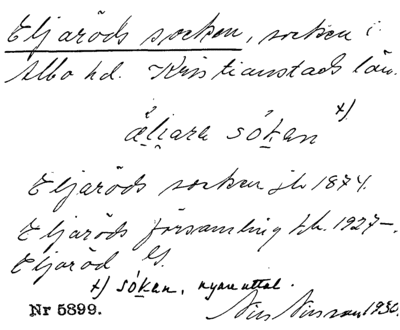 Eljaröds socken, socken i
Albo hd. Kristianstads län.
ä̆l̯i̯ara sók̯an x)
Eljaröds socken jb 1874.
Eljaröds församling kb. 1927–.
Eljaröd Gs.
x) sók̯an, nyare uttal.
Nr 5899. Nils Nilsson 1930.